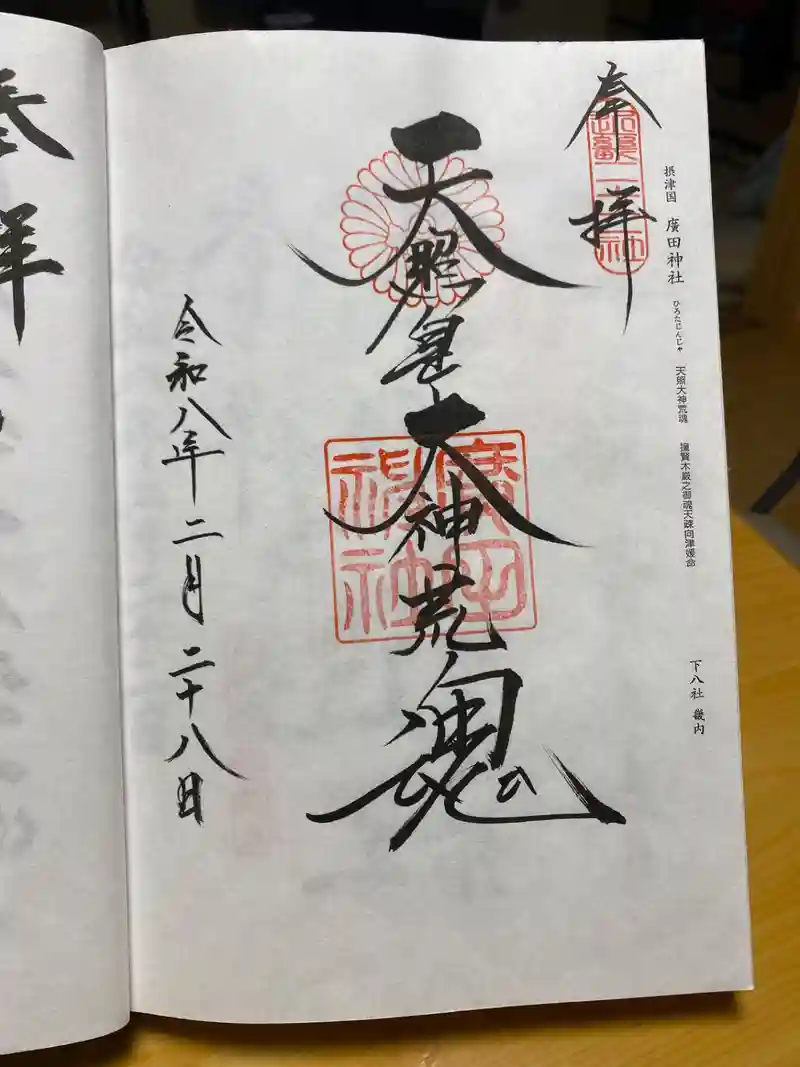 摂津国 廣田神社 ひろたじんじゃ 天照大神荒魂 撞賢木厳之御魂天疎向津媛命 下八社 畿内
奉拝
天照皇大神荒魂
廣田神社
令和八年二月二十八日